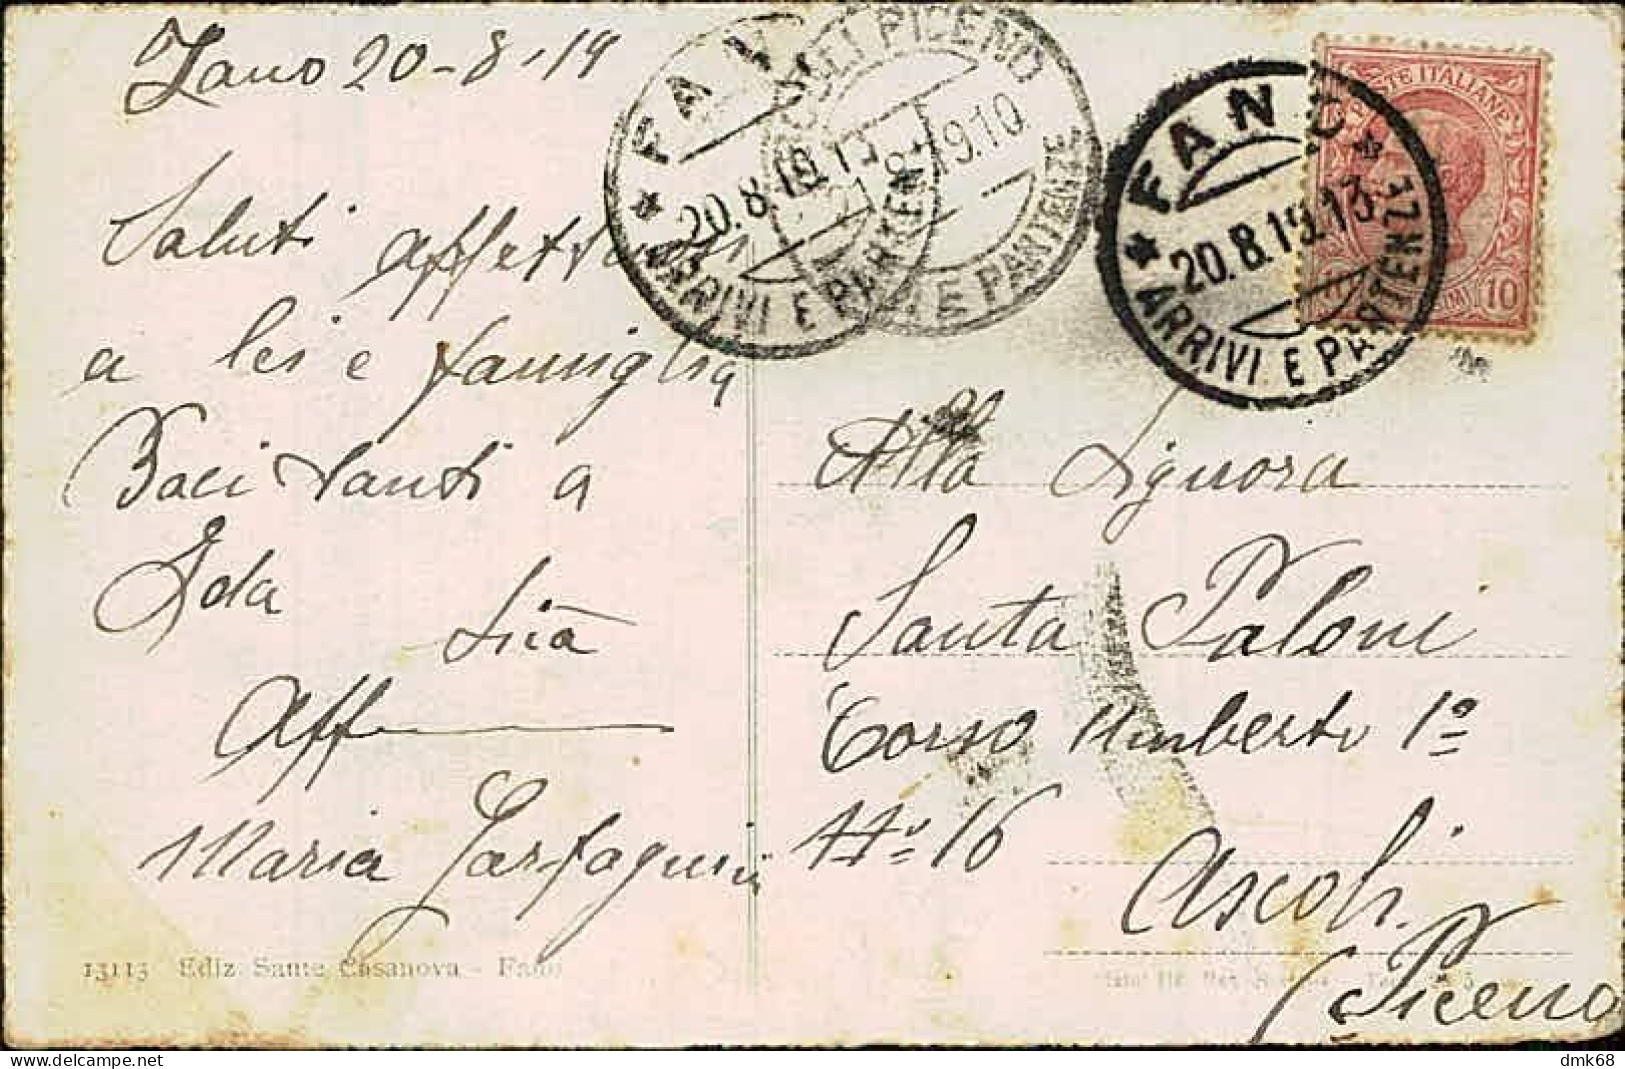 Fano 20-8-19
Saluti affettuosi
a lei e famiglia
Baci tanti a
Ida
Sua
Aff
Maria
13113 Ediz Sante Casanova - Fano
FANO
20.8.19.13
ARRIVI E PARTENZE
ASCOLI PICENO
19.10
ARRIVI E PARTENZE
FANO
20.8.19.13
ARRIVI E PARTENZE
POSTE ITALIANE
10
Alla Signora
Santa Paloni
Corso Umberto 1º
Nº 16
Ascoli
Piceno
dmk68